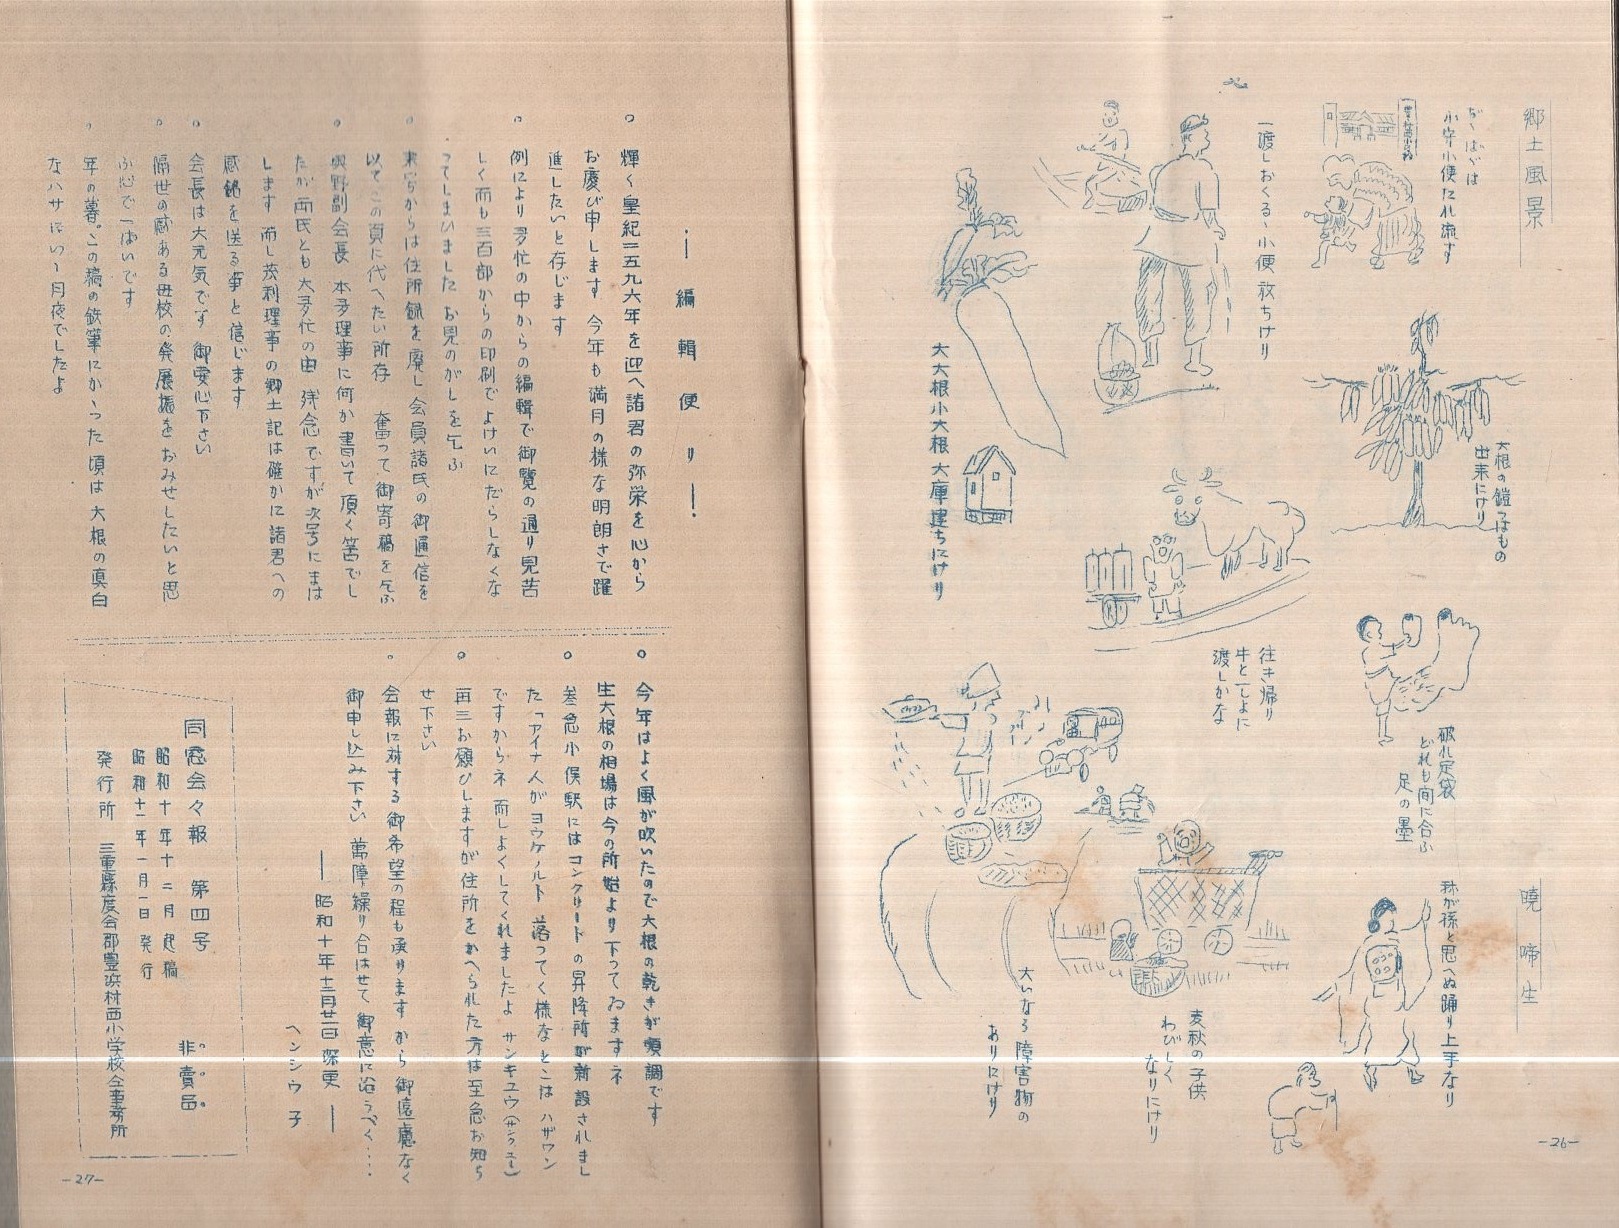 郷土風景
暁啼生
小守小便たれ流す
一渡しおくるゝ小便放ちけり
大根の鎧つはもの
出来にけり
大大根小大根大庫建ちにけり
往き帰り
牛と一しよに
渡しかな
破れ足袋
どれも間に合ふ
足の墨
我が孫と思へぬ踊り上手なり
麦秋の子供
わびしく
なりにけり
大いなる障害物の
ありにけり
-26-
―編輯便り―
。輝く皇紀二五九六年を迎へ諸君の弥栄を心から
お慶び申します 今年も満月の様な明朗さで躍
進したいと存じます
。例により多忙の中からの編輯で御覧の通り見苦
しく而も三百部からの印刷でよけいにだらしなくな
つてしまひました お見のがしを乞ふ
。来号からは住所録を廃し会員諸氏の御通信を
以てこの頁に代へたい所存 奮つて御寄稿を乞ふ
。奥野副会長 本多理事に何か書いて頂く筈でし
たが両氏とも大多忙の由 残念ですが次号にまは
します 而し 理事の郷土記は確かに諸君への
感銘を送る事と信じます
。会長は大元気です 御安心下さい
。隔世の感ある母校の発展振をおみせしたいと思
ふ心で一ぱいです
。年の暮。この稿の鉄筆にかゝつた頃は大根の真白
なハサにいゝ月夜でしたよ
。今年はよく風が吹いたので大根の乾きが順調です
生大根の相場は今の所始より下つてゐますネ
。参急小俣駅にはコンクリートの昇降所が新設されまし
た「アイナ人がヨウケノルト 落つてく様なとこは ハザワン
ですからネ 而しよくしてくれましたよ サンキユウ(サンクユー)
。再三お願ひしますが住所をかへられた方は至急お知ら
せ下さい
。会報に対する御希望の程も承ります から 御遠慮なく
御申し込み下さい 萬障繰り合はせて 御意に沿うべく‥‥
―昭和十年十二月廿一日深更―
ヘンシウ子
同窓会々報 第四号 非賣品
昭和十年十二月起稿
昭和十一年一月一日発行
発行所 三重縣度会郡豊浜村西小学校仝事務所
-27-